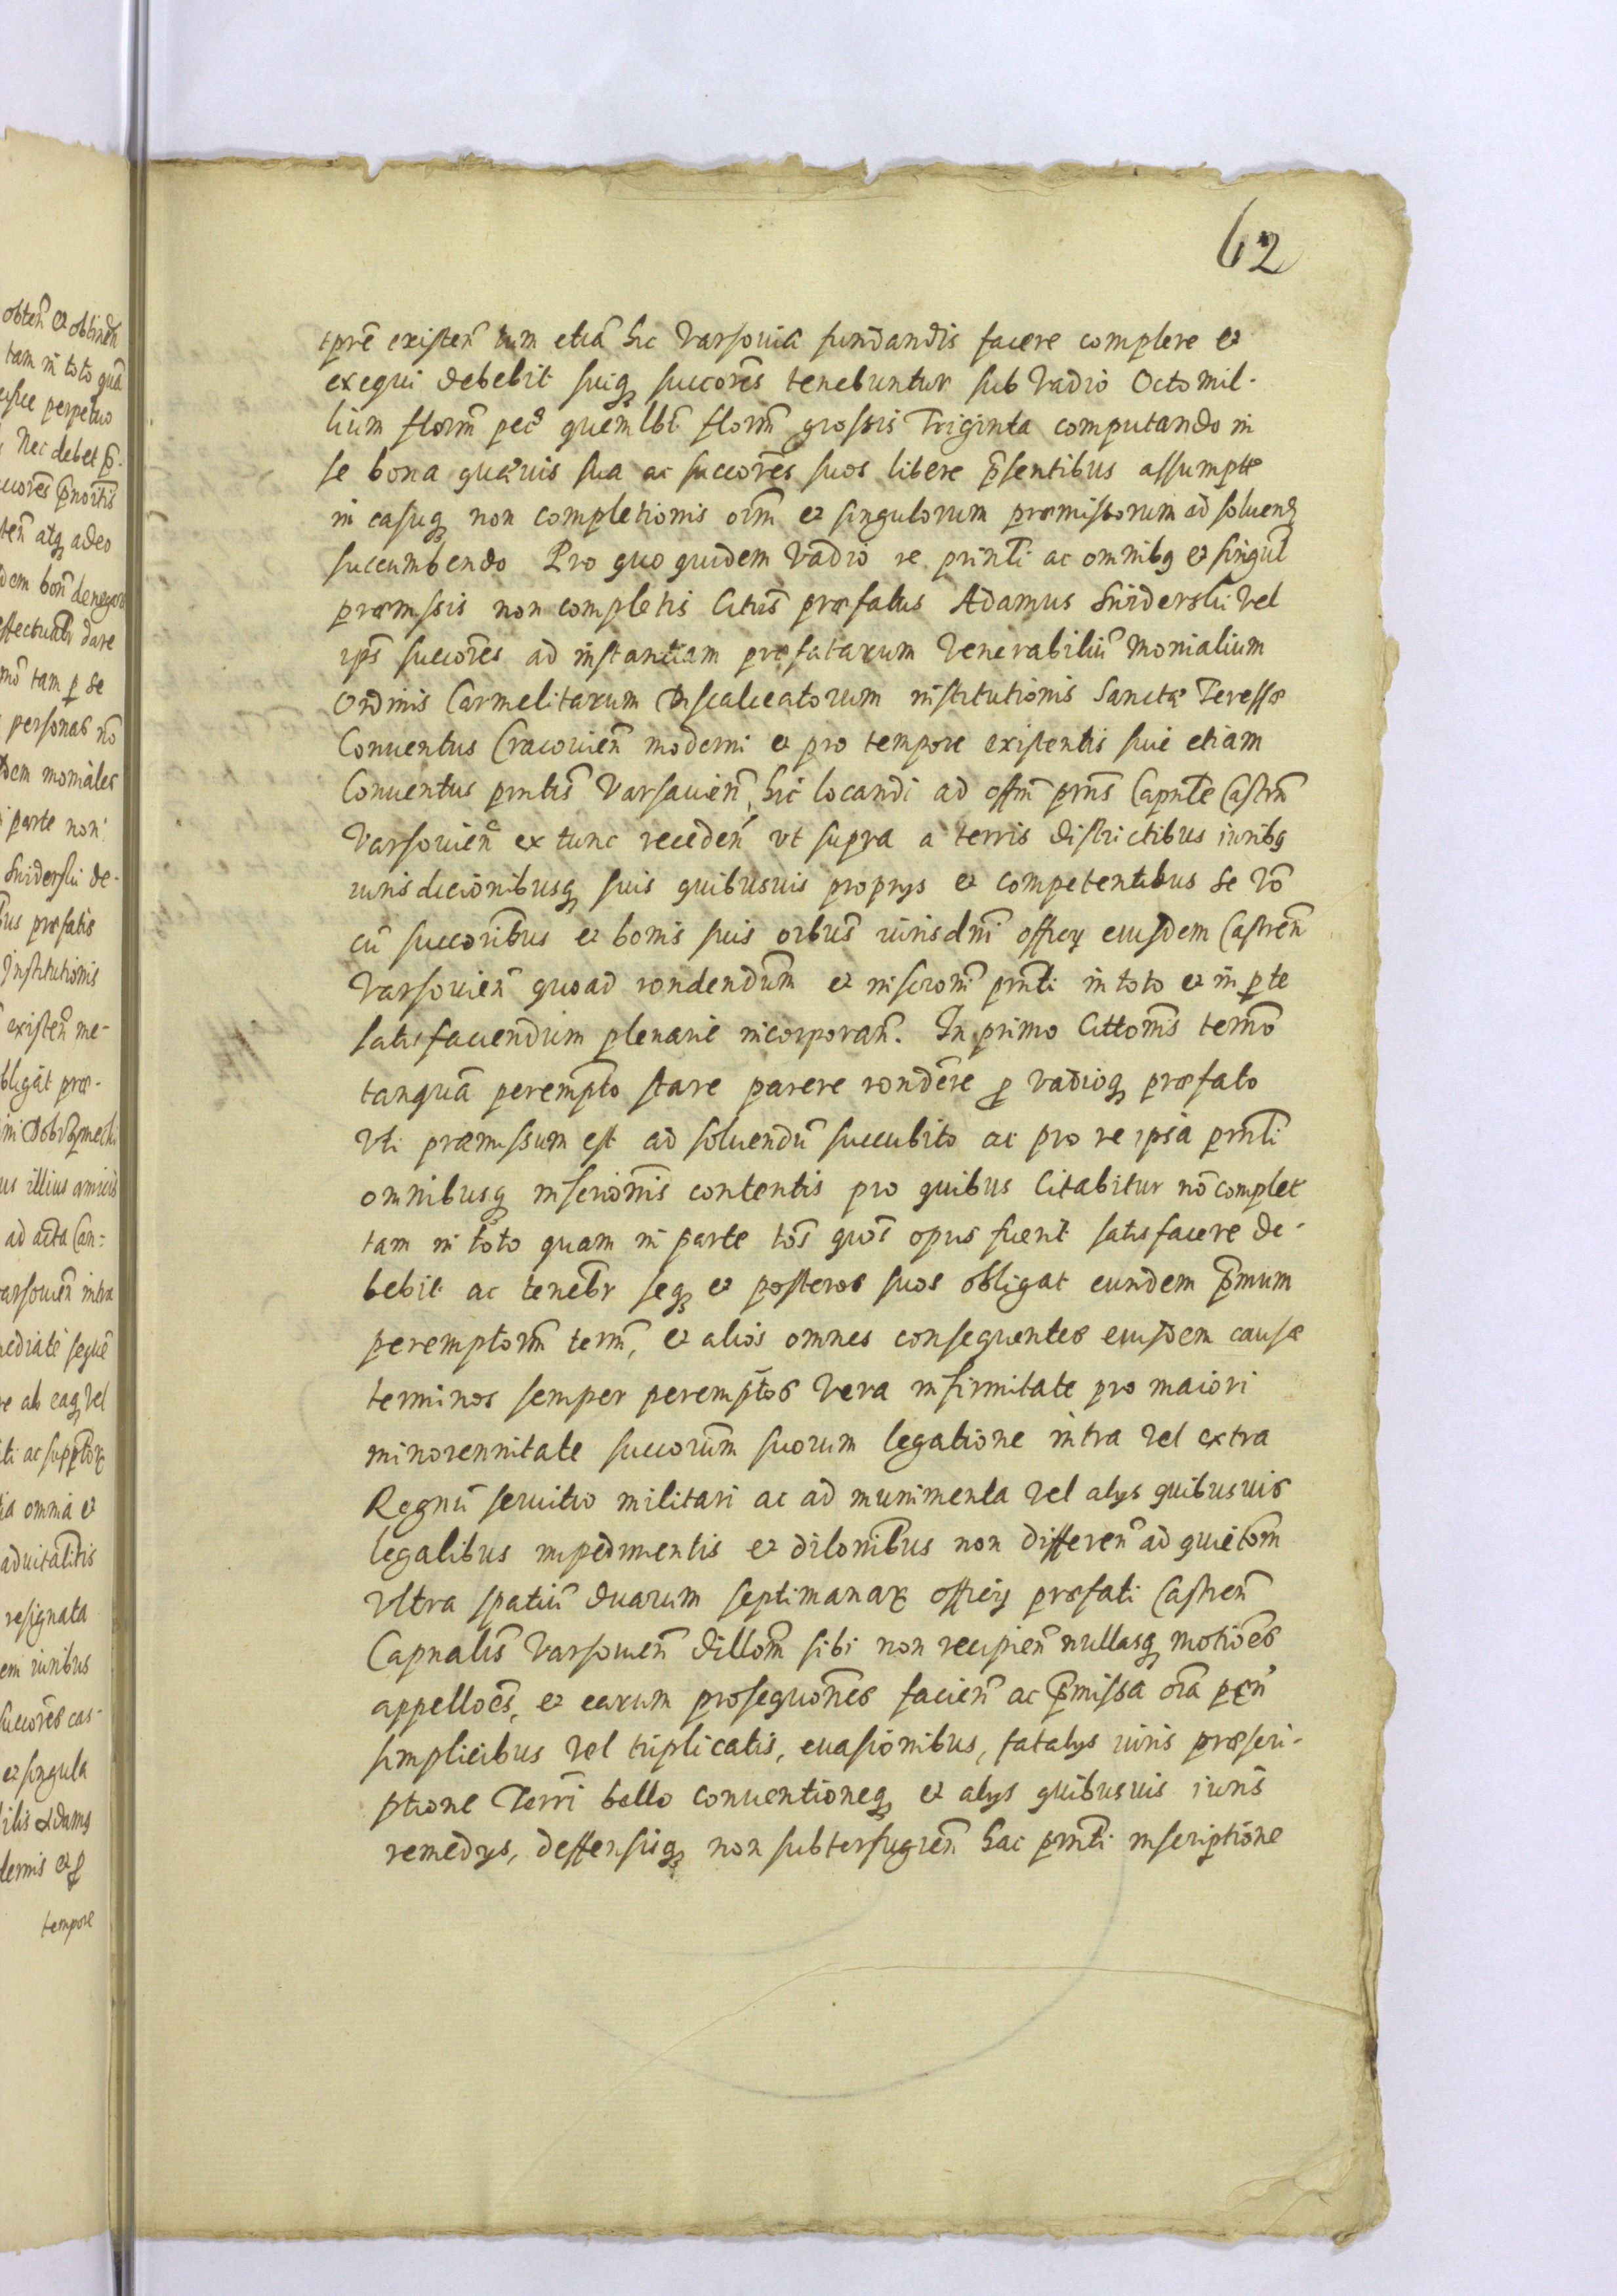 obten̄ et obtinen̄
tam in toto quā
perpetuo
Nec debet p̄-
succores p̄nortis
ten̄ atq adeo
dem bon̄ denegare
effectualr dare
mō tam p se
personas nō
dem moniales
parte non
Sniderski de-
præfatis
Institutionis
existen̄ me-
obligat præ-
us illius
ad acta Can=
Varsouien̄ intra
mediate sequē
re ab eaq vel
ti ac
omnia et
aduitalitis
resignata
em iuribus
succores cas-
et singula
Adamg
dernis et p
tempore
62
tpre existen̄ tum etiā hic Varsouiæ fundandis facere complere et
exequi debebit suiq succores tenebuntur sub Vadio Octo mil-
lium florm̄ pec quemlbt florm̄ grossis Triginta computando in
se bona quæuis sua ac succores suos libere p̄sentibus assumpte
in casuq non completionis oīm et singulorum præmissorum ad soluend
succumbendo Pro quo quidem Vadio re prīnti ac omnibg et singul
præmissis non completis Citūs præfatus Adamus Sniderski Vel
ips succores ad instantiam præfatarum Venerabiliū Monialium
Ordinis Carmelitarum Discalceatorum institutionis Sanctæ Teressæ
Conuentus Cracouien̄ moderni et pro tempore existentis siue etiam
Conuentus pr̄ntis Varsauien̄, hic locandi ad offm̄ prn̄s Capnte Castrn̄
Varsouien̄ ex tunc receden̄ vt supra a terris districtibus iuribg
iurisdicionibusq suis quibusuis proprys et competentibus se vō
cū succoribus et bonis suis oibus iurisdnī officy eiusdem Castren̄
Varsouien̄ quoad rōndendum et inscronī prn̄ti in toto et in pte
satisfaciendum plenarie incorporan̄. In primo Cittonis termō
tanquā perempto stare parere rondere p vadioq præfato
Vti præmissum est ad soluendū succubito ac pro re ipsa prn̄ti
omnibusq inscrionis contentis pro quibus Citabitur nō complet
tam in toto quam in parte tos quos opus fuerit satisfacere de-
bebit ac tenebr seq et posteros suos obligat eundem p̄mum
peremptorm̄ term̄, et alios omnes consequentes eiusdem causæ
terminos semper peremptos vera infirmitate pro maiori
minorennitate succorum suorum legatione intra vel extra
Regnū seruitio militari ac ad munimenta Vel alys quibusuis
legalibus impedimentis et dilonibus non differen̄ ad quietom
Vltra spatiū duarum septimanar officy præfati Castren̄
Capnalis Varsouien̄ dillom̄ sibi non recipien̄ nullasq motioēs
appelloēs, et earum prosequōnes facien̄ ac p̄missa oīa
simplicibus vel triplicatis, euasionibus, fatalys iuris præscri-
ptione Terrī bello conuentioneq et alys quibusuis iuris
remedys, deffensisq non subterfugien̄ hac prn̄ti inscriptione